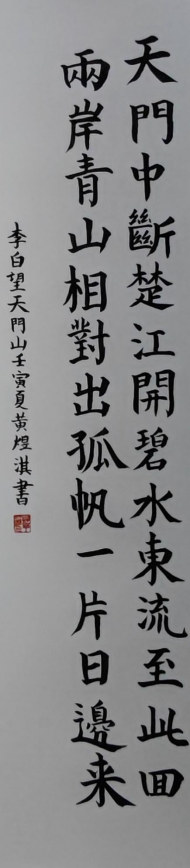 天門中斷楚江開碧水東流至此回
兩岸青山相對出孤帆一片日邊来
李白望天門山壬寅夏黄煜淇書